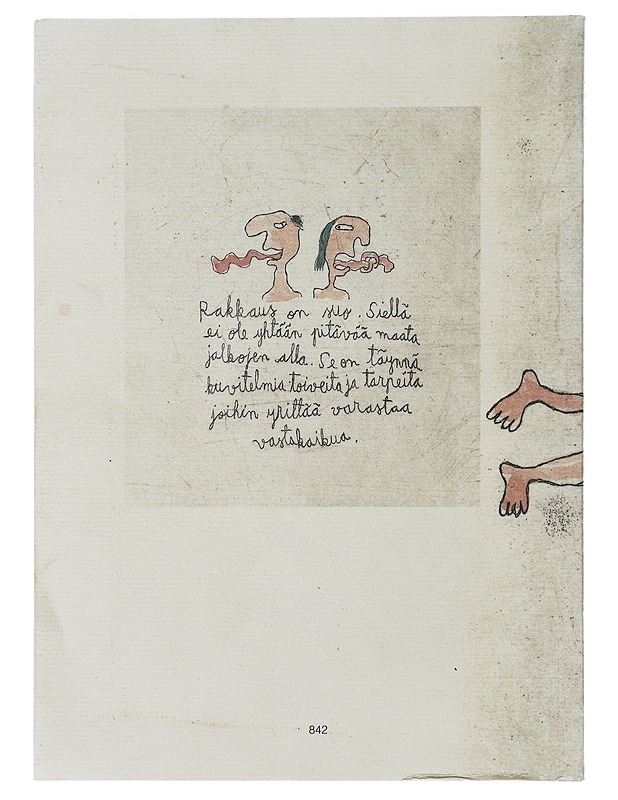 Rakkaus on suo. Siellä
ei ole yhtään pitävää maata
jalkojen alla. Se on täynnä
kuvitelmia toiveita ja tarpeita
joihin yrittää varastaa
vastakaikua.
842